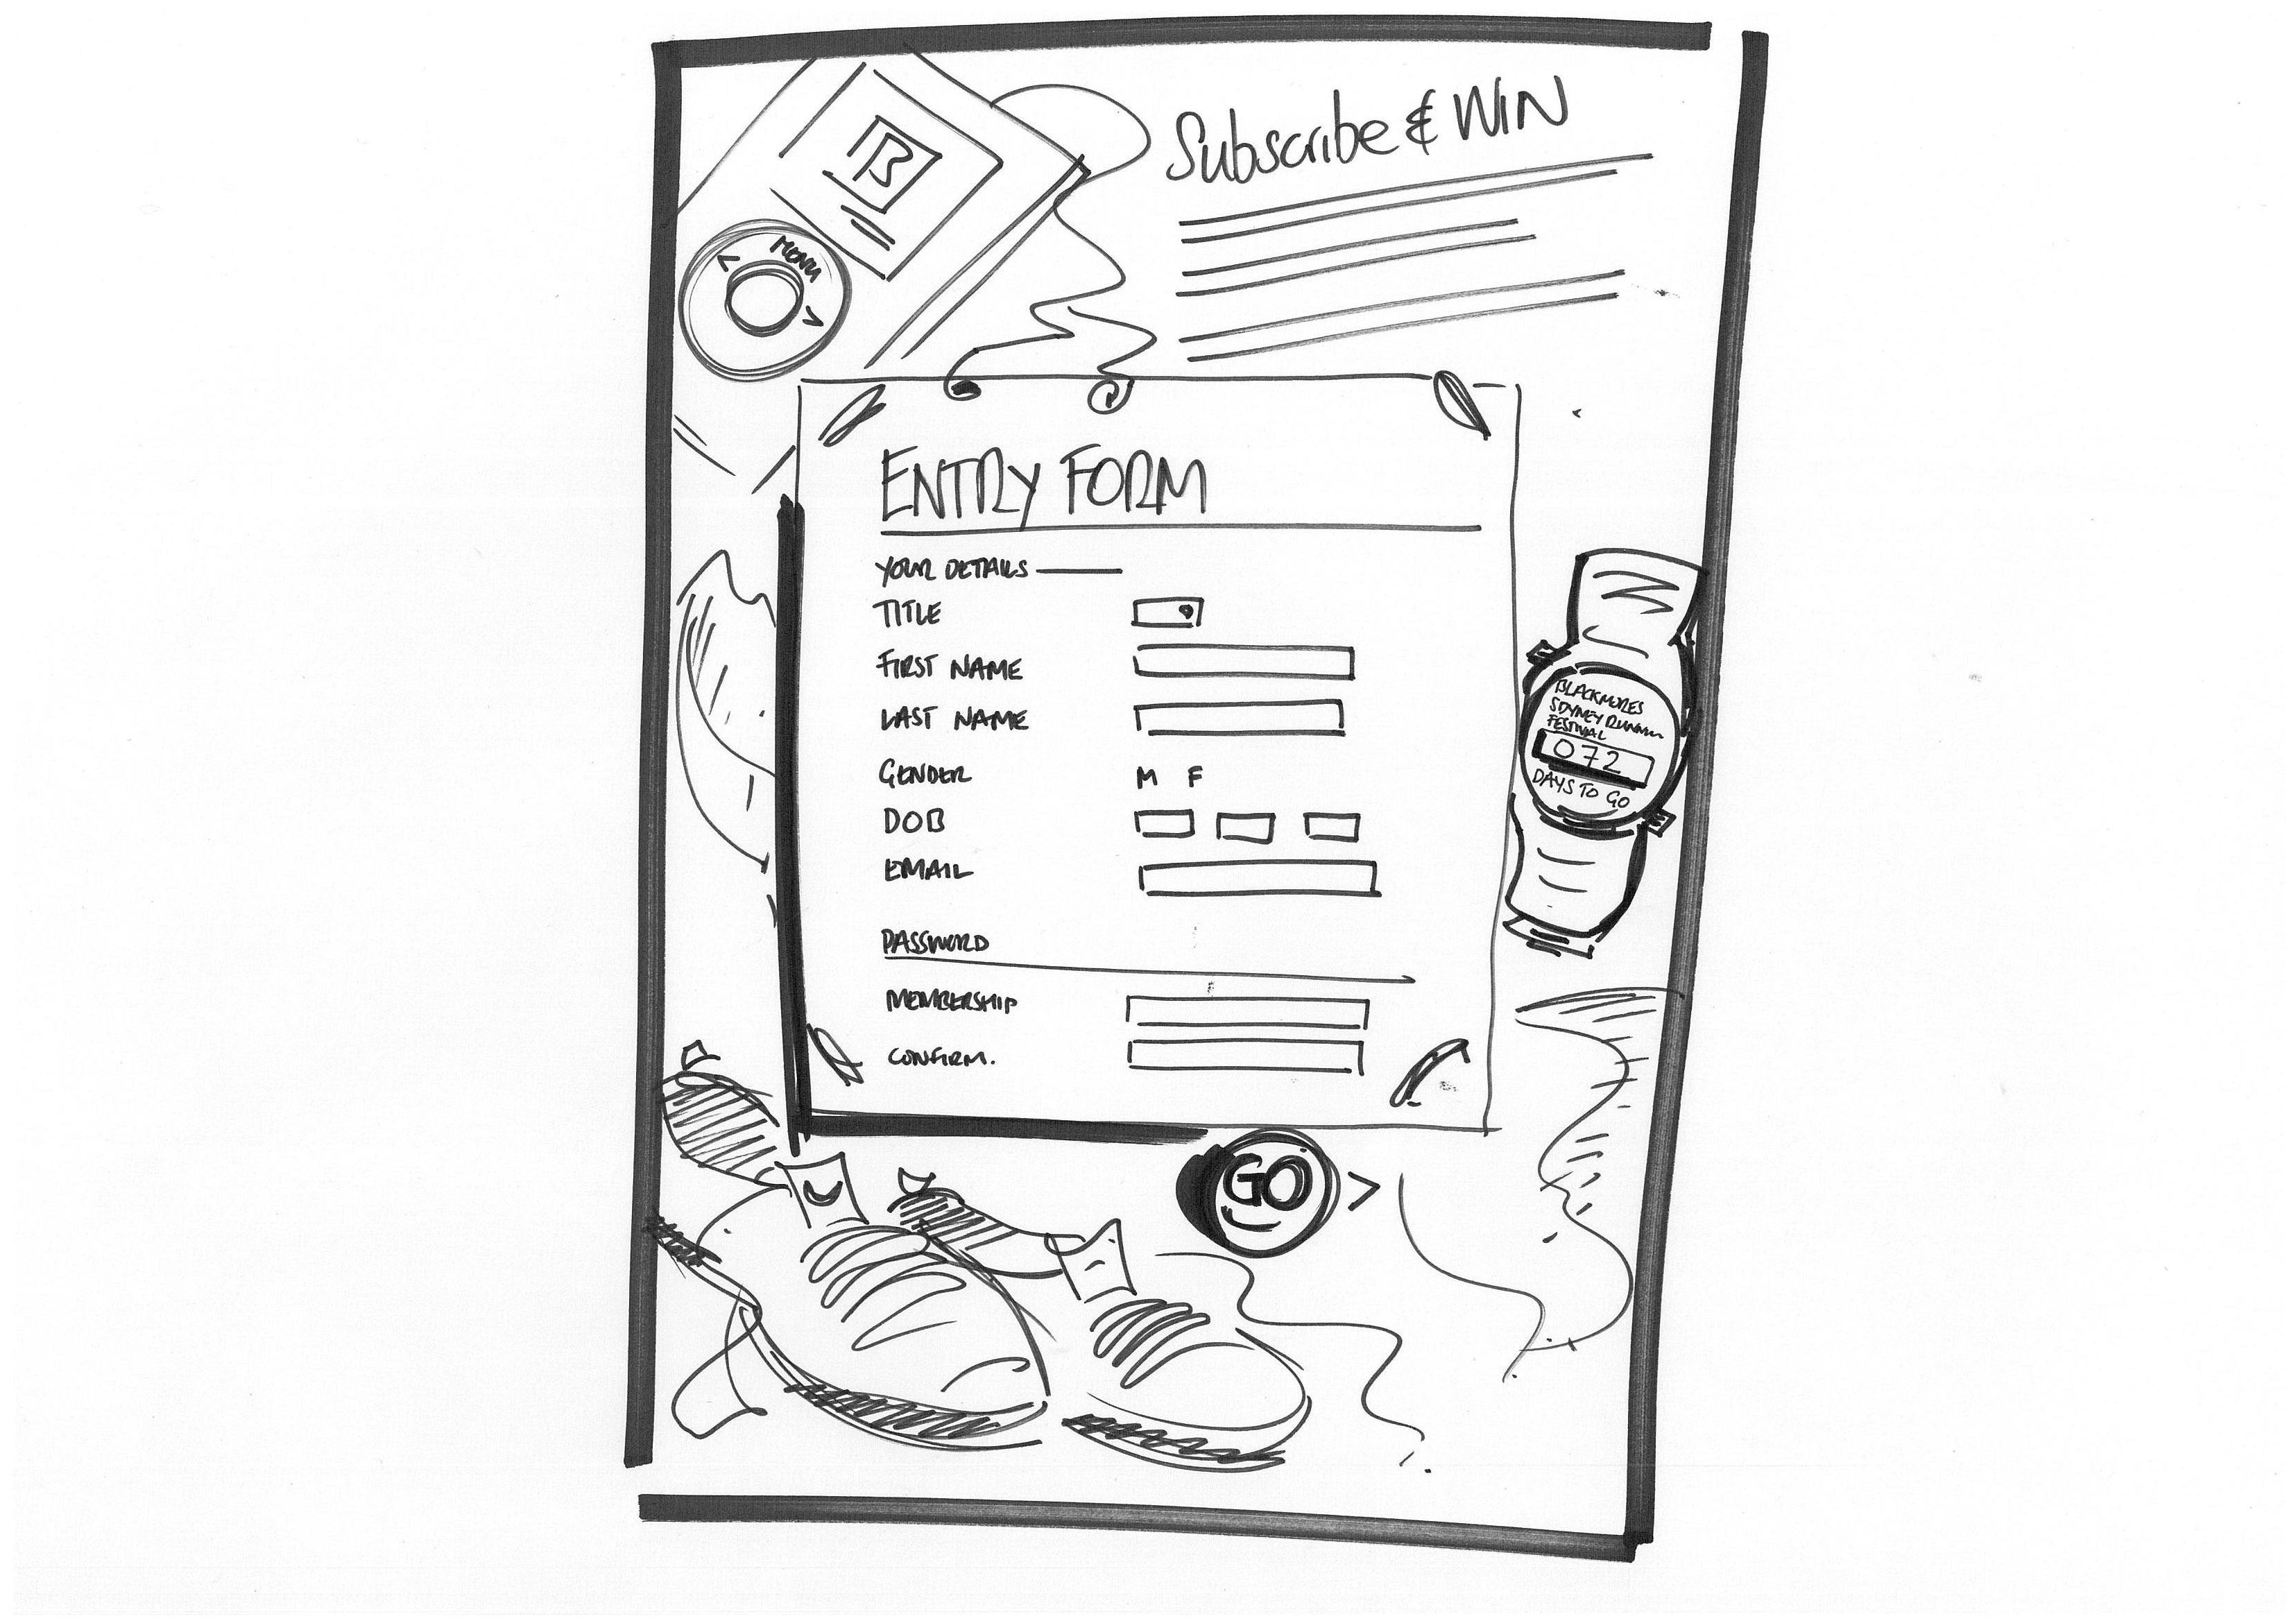 Subscribe & WIN
B
MENU
< >
ENTRY FORM
YOUR DETAILS
TITLE
FIRST NAME
LAST NAME
GENDER M F
DOB
EMAIL
PASSWORD
MEMBERSHIP
CONFIRM.
BLACKMORES
SDYNEY
FESTIVAL
072
DAYS TO GO
GO >